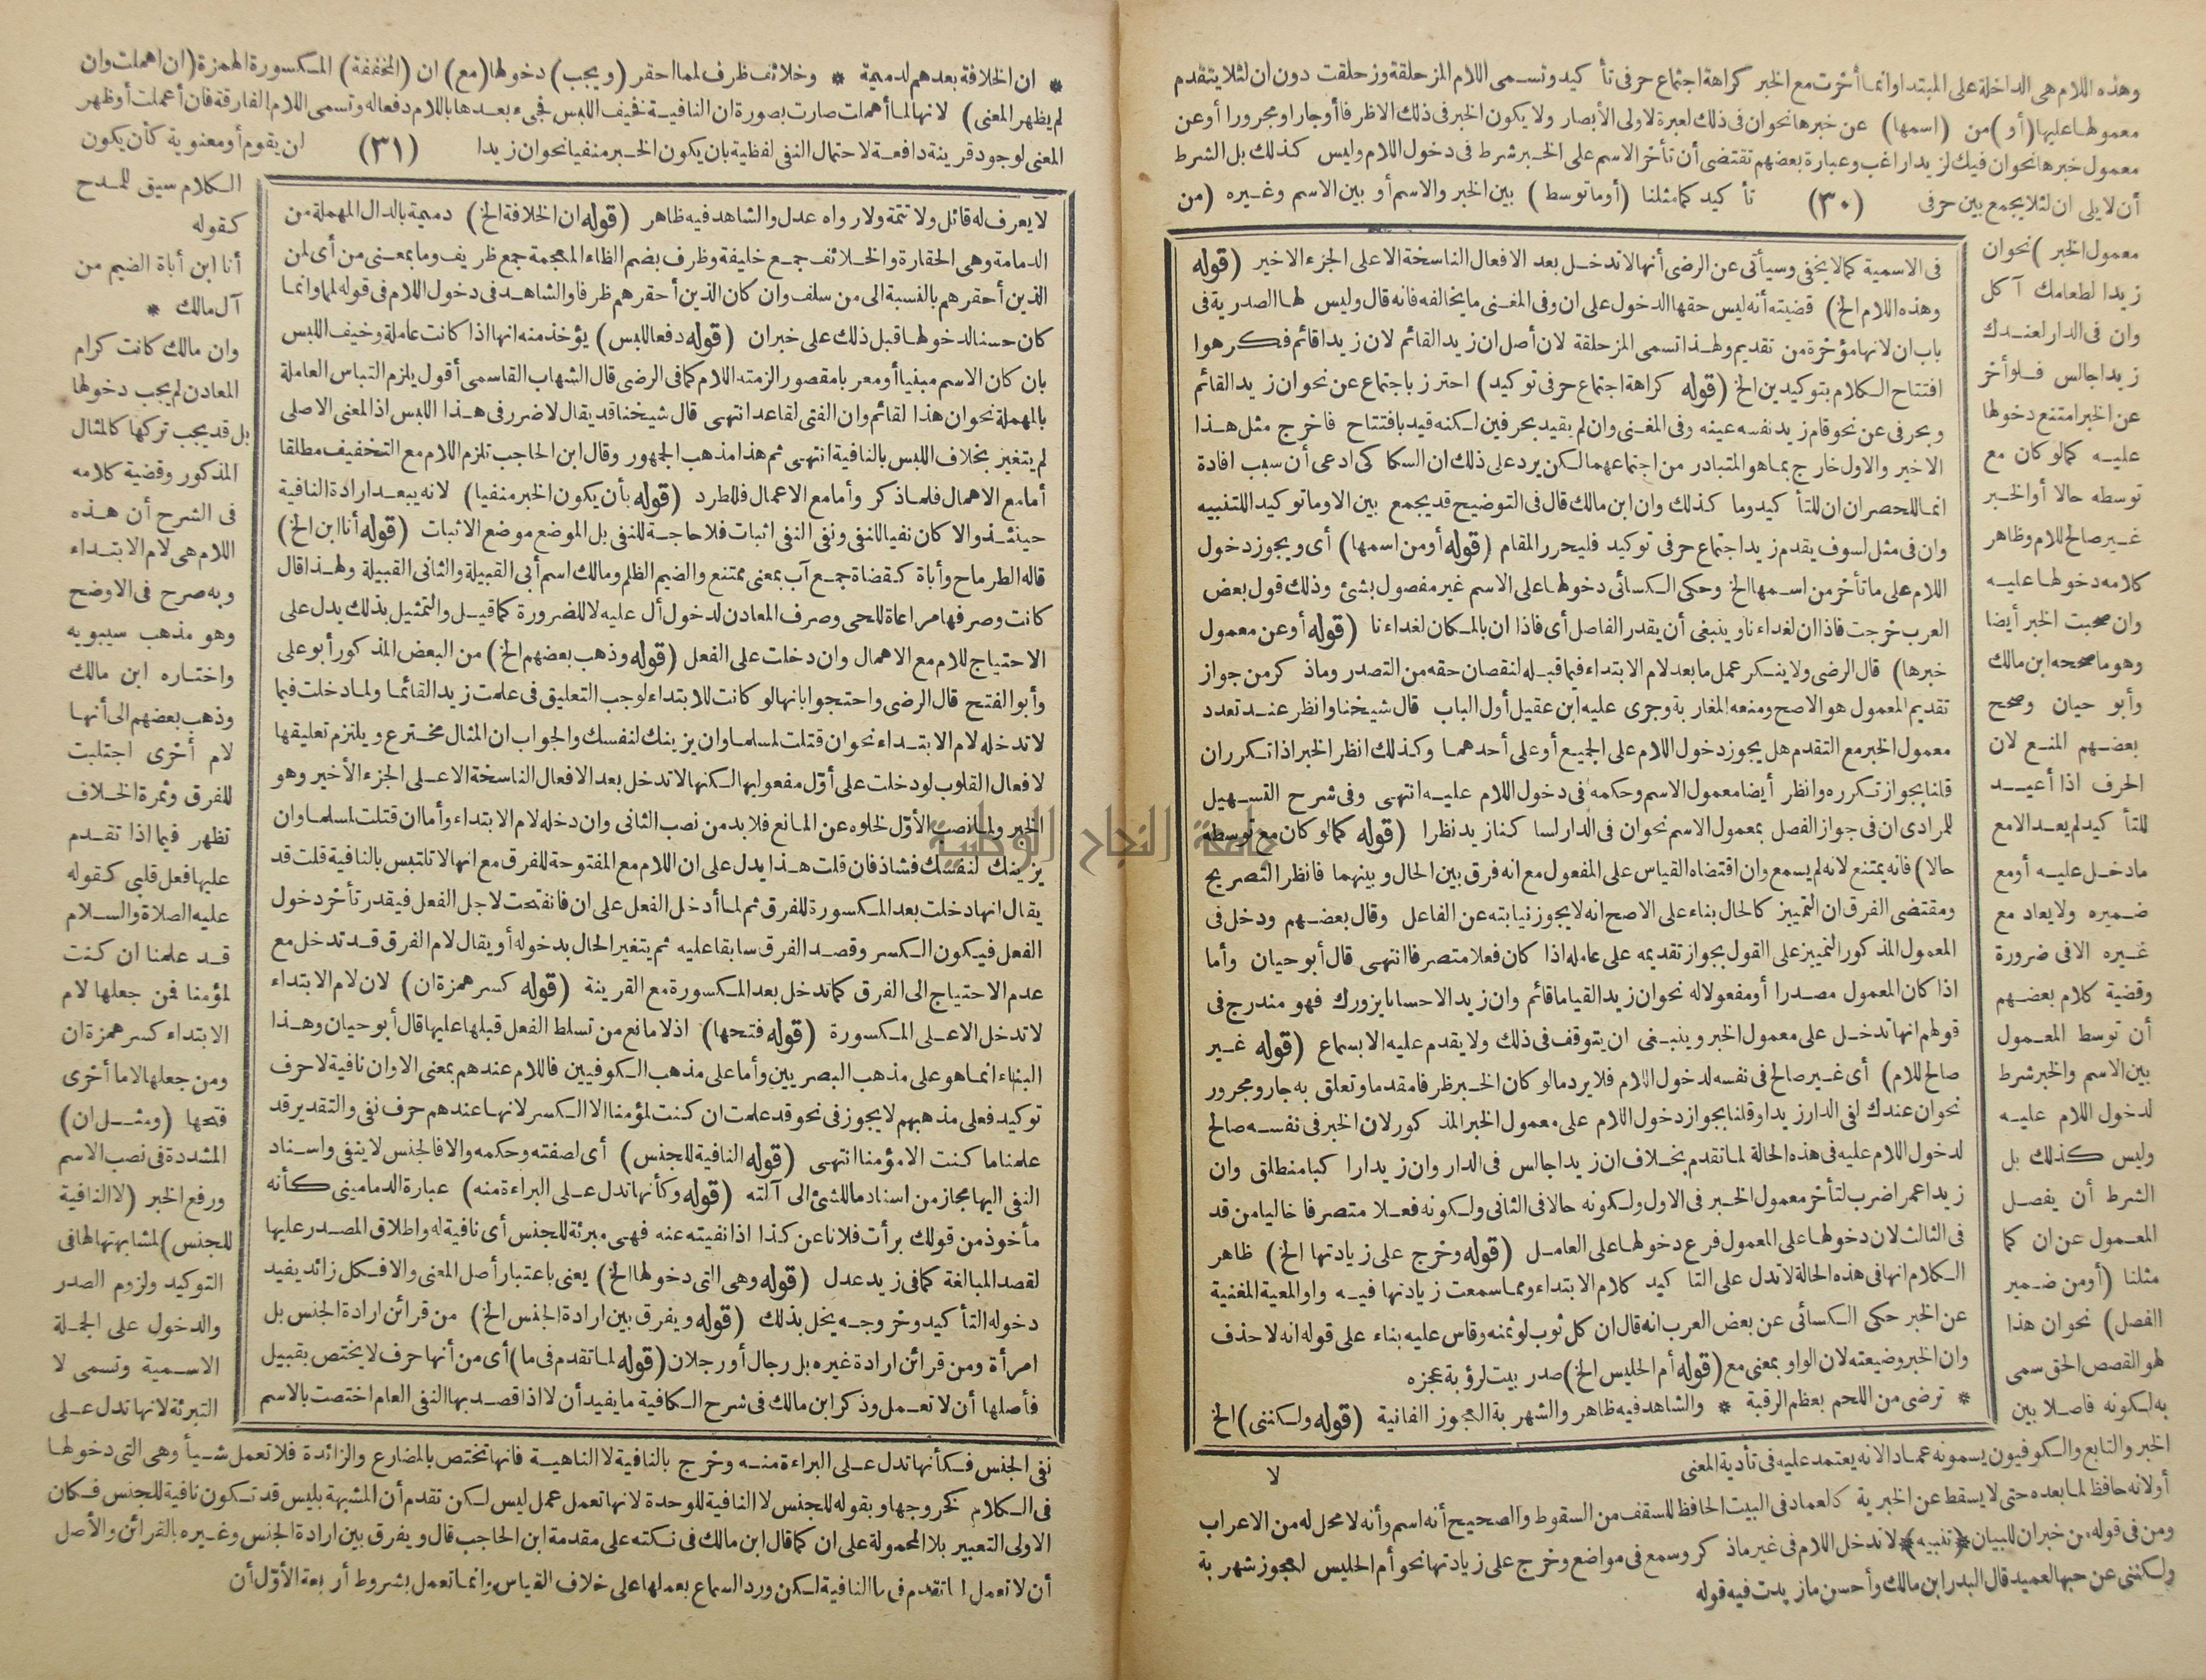 وهذه اللام هى الداخلة على المبتدا وانما أخرت مع الخبر كراهة اجتماع حرفى تأكيد وتسمى اللام المزحلقة وزحلقت دون ان لئلا يتقدم
معمولها عليها (أو) من (اسمها) عن خبرها نحو ان فى ذلك لعبرة لاولى الأبصار ولا يكون الخبر فى ذلك الا ظرفا أو جارا ومجرورا أو عن
معمول خبرها نحو ان فيك لزيدا راغب وعبارة بعضهم تقتضى أن تأخر الاسم على الخبر شرط فى دخول اللام وليس كذلك بل الشرط
أن لا يلى ان لئلا يجمع بين حرفى (٣٠) تأكيد كما مثلنا (أوما توسط) بين الخبر والاسم أو بين الاسم وغيره (من
معمول الخبر) نحو ان
زيدا لطعامك آكل
وان فى الدار لعندك
زيدا جالس فلو أخر
عن الخبر امتنع دخولها
عليه كما لو كان مع
توسطه حالا أو الخبر
غير صالح للام وظاهر
كلامه دخولها عليه
وان صحبت الخبر أيضا
وهو ما صححه ابن مالك
وأبو حيان وصحح
بعضهم المنع لان
الحرف اذا أعيد
للتأكيد لم يعد الا مع
ما دخل عليه أو مع
ضميره ولا يعاد مع
غيره الا فى ضرورة
وقضية كلام بعضهم
أن توسط المعمول
بين الاسم والخبر شرط
لدخول اللام عليه
وليس كذلك بل
الشرط أن يفصل
المعمول عن ان كما
مثلنا (أو من ضمير
الفصل) نحو ان هذا
لهو القصص الحق سمى
به لكونه فاصلا بين
الخبر والتابع والكوفيون يسمونه عمادا لانه يعتمد عليه فى تأدية المعنى
أو لانه حافظ لما بعده حتى لا يسقط عن الخبرية كالعماد فى البيت الحافظ للسقف من السقوط والصحيح أنه اسم وأنه لا محل له من الاعراب
ومن فى قوله من خبر ان للبيان ﴿تنبيه﴾ لا تدخل اللام فى غير ما ذكر وسمع فى مواضع وخرج على زيادتها نحو أم الحليس لعجوز شهربة
ولكننى عن حبها لعميد قال البدر ابن مالك وأحسن ما زيدت فيه قوله
فى الاسمية كما لا يخفى وسيأتى عن الرضى أنها لا تدخل بعد الافعال الناسخة الا على الجزء الاخير (قوله
وهذه اللام الخ) قضيته أنه ليس حقها الدخول على ان وفى المغنى ما يخالفه فانه قال وليس لها الصدرية فى
باب ان لانها مؤخرة من تقديم ولهذا تسمى المزحلقة لان أصل ان زيد القائم لان زيدا قائم فكرهوا
افتتاح الكلام بتوكيدين الخ (قوله كراهة اجتماع حرفى توكيد) احترز باجتماع عن نحو ان زيد القائم
وبحرفى عن نحو قام زيد نفسه عينه وفى المغنى وان لم يقيد بحرفين لكنه قيد بافتتاح فاخرج مثل هذا
الاخير والاول خارج بما هو المتبادر من اجتماعهما لكن يرد على ذلك ان السكاكى ادعى أن سبب افادة
انما للحصر ان ان للتأكيد وما كذلك وان ابن مالك قال فى التوضيح قد يجمع بين الا وما توكيد اللتنبيه
وان فى مثل لسوف يقدم زيد اجتماع حرفى توكيد فليحرر المقام (قوله أو من اسمها) أى ويجوز دخول
اللام على ما تأخر من اسمها الخ وحكى الكسائى دخولها على الاسم غير مفصول بشئ وذلك قول بعض
العرب خرجت فاذا ان لغداءنا وينبغى أن يقدر الفاصل أى فاذا ان بالمكان لغداءنا (قوله أو عن معمول
خبرها) قال الرضى ولا ينكر عمل ما بعد لام الابتداء فيما قبله لنقصان حقه من التصدر وما ذكر من جواز
تقديم المعمول هو الاصح ومنعه المغاربة وجرى عليه ابن عقيل أول الباب قال شيخنا وانظر عند تعدد
معمول الخبر مع التقدم هل يجوز دخول اللام على الجميع أو على أحدهما وكذلك انظر الخبر اذا تكرر ان
قلنا بجواز تكرره وانظر أيضا معمول الاسم وحكمه فى دخول اللام عليه انتهى وفى شرح التسهيل
للمرادى ان فى جواز الفصل بمعمول الاسم نحو ان فى الدار لساكنا زيد نظرا (قوله كما لو كان مع توسطه
حالا) فانه يمتنع لانه لم يسمع وان اقتضاه القياس على المفعول مع انه فرق بين الحال وبينهما فانظر التصريح
ومقتضى الفرق ان التمييز كالحال بناء على الاصح انه لا يجوز نيابته عن الفاعل وقال بعضهم ودخل فى
المعمول المذكور التمييز على القول بجواز تقديمه على عامله اذا كان فعلا متصرفا انتهى قال أبو حيان وأما
اذا كان المعمول مصدرا أو مفعولا له نحو ان زيد القياما قائم وان زيدا لاحسانا يزورك فهو مندرج فى
قولهم انها تدخل على معمول الخبر وينبغى ان يتوقف فى ذلك ولا يقدم عليه الا بسماع (قوله غير
صالح للام) أى غير صالح فى نفسه لدخول اللام فلا يرد ما لو كان الخبر ظرفا مقدما وتعلق به جار ومجرور
نحو ان عندك لفى الدار زيدا وقلنا بجواز دخول اللام على معمول الخبر المذكور لان الخبر فى نفسه صالح
لدخول اللام عليه فى هذه الحالة لما تقدم بخلاف ان زيدا جالس فى الدار وان زيدا راكبا منطلق وان
زيدا عمرا ضرب لتأخر معمول الخبر فى الاول ولكونه حالا فى الثانى ولكونه فعلا متصرفا خاليا من قد
فى الثالث لان دخولها على المعمول فرع دخولها على العامل (قوله وخرج على زيادتها الخ) ظاهر
الكلام انها فى هذه الحالة لا تدل على التاكيد كلام الابتداء ومما سمعت زيادتها فيه واو المعية المغنية
عن الخبر حكى الكسائى عن بعض العرب انه قال ان كل ثوب لو ثمنه وقاس عليه بناء على قوله انه لا حذف
وان الخبر وضيعته لان الواو بمعنى مع (قوله أم الحليس الخ) صدر بيت لرؤبة عجزه
* ترضى من اللحم بعظم الرقبة * والشاهد فيه ظاهر والشهربة العجوز الفانية (قوله ولكننى) الخ
لا
* ان الخلافة بعدهم لدميمة * وخلائف ظرف لمما احقر (ويجب) دخولها (مع) ان (المخففة) المكسورة الهمزة (ان اهملت وان
لم يظهر المعنى) لانها لما أهملت صارت بصورة ان النافية فخيف اللبس فجىء بعدها باللام دفعا له وتسمى اللام الفارقة فان أعملت أو ظهر
المعنى لوجود قرينة دافعة لاحتمال النفى لفظية بان يكون الخبر منفيا نحو ان زيدا (٣١) ان يقوم أو معنوية كأن يكون
الكلام سيق للمدح
كقوله
أنا ابن أباة الضيم من
آل مالك *
وان مالك كانت كرام
المعادن لم يجب دخولها
بل قد يجب تركها كالمثال
المذكور وقضية كلامه
فى الشرح أن هذه
اللام هى لام الابتداء
وبه صرح فى الاوضح
وهو مذهب سيبويه
واختاره ابن مالك
وذهب بعضهم الى أنها
لام أخرى اجتلبت
للفرق وثمرة الخلاف
تظهر فيما اذا تقدم
عليها فعل قلبى كقوله
عليه الصلاة والسلام
قد علمنا ان كنت
لمؤمنا فمن جعلها لام
الابتداء كسر همزة ان
ومن جعلها لاما أخرى
فتحها (ومثل ان)
المشددة فى نصب الاسم
ورفع الخبر (لا النافية
للجنس) لمشابهتها لها فى
التوكيد ولزوم الصدر
والدخول على الجملة
الاسمية وتسمى لا
التبرئة لانها تدل على
نفى الجنس فكأنها تدل على البراءة منه وخرج بالنافية لا الناهية فانها تختص بالمضارع والزائدة فلا تعمل شيأ وهى التى دخولها
فى الكلام كخروجها وبقوله للجنس لا النافية للوحدة لانها تعمل عمل ليس لكن تقدم أن المشبهة بليس قد تكون نافية للجنس فكان
الاولى التعبير بلا المحمولة على ان كما قال ابن مالك فى نكته على مقدمة ابن الحاجب قال ويفرق بين ارادة الجنس وغيره بالقرائن والأصل
أن لا تعمل لما تقدم فى ما النافية لكن ورد السماع بعملها على خلاف القياس وانما تعمل بشروط أربعة الأول أن
لا يعرف له قائل ولا تتمة ولا رواه عدل والشاهد فيه ظاهر (قوله ان الخلافة الخ) دميمة بالدال المهملة من
الدمامة وهى الحقارة والخلائف جمع خليفة وظرف بضم الظاء المعجمة جمع ظريف وما بمعنى من أى لمن
الذين أحقرهم بالنسبة الى من سلف وان كان الذين أحقرهم ظرفا والشاهد فى دخول اللام فى قوله لما وانما
كان حسنا لدخولها قبل ذلك على خبر ان (قوله دفعا للبس) يؤخذ منه انها اذا كانت عاملة وخيف اللبس
بان كان الاسم مبنيا أو معربا مقصورا لزمته اللام كما فى الرضى قال الشهاب القاسمى أقول يلزم التباس العاملة
بالمهملة نحو ان هذا لقائم وان الفتى لقاعد انتهى قال شيخنا قد يقال لا ضرر فى هذا اللبس اذ المعنى الاصلى
لم يتغير بخلاف اللبس بالنافية انتهى ثم هذا مذهب الجمهور وقال ابن الحاجب تلزم اللام مع التخفيف مطلقا
أما مع الاهمال فلما ذكر وأما مع الاعمال فللطرد (قوله بأن يكون الخبر منفيا) لانه يبعد ارادة النافية
حينئذ والا كان نفيا للنفى ونفى النفى اثبات فلا حاجة للنفى بل الموضع موضع الاثبات (قوله أنا ابن الخ)
قاله الطرماح وأباة كقضاة جمع آب بمعنى ممتنع والضيم الظلم ومالك اسم أبى القبيلة والثانى القبيلة ولهذا قال
كانت وصرفها مراعاة للحى وصرف المعادن لدخول أل عليه لا للضرورة كما قيل والتمثيل بذلك يدل على
الاحتياج للام مع الاهمال وان دخلت على الفعل (قوله وذهب بعضهم الخ) من البعض المذكور أبو على
وأبو الفتح قال الرضى واحتجوا بانها لو كانت للابتداء لوجب التعليق فى علمت زيد القائما ولما دخلت فيما
لا تدخله لام الابتداء نحو ان قتلت لمسلما وان يزينك لنفسك والجواب ان المثال مخترع ويلتزم تعليقها
لافعال القلوب لو دخلت على أول مفعوليها لكنها لا تدخل بعد الافعال الناسخة الا على الجزء الأخير وهو
الخبر ولما نصب الأول لخلوه عن المانع فلا بد من نصب الثانى وان دخله لام الابتداء وأما ان قتلت لمسلما وان
يزينك لنفسك فشاذ فان قلت هذا يدل على ان اللام مع المفتوحة للفرق مع انها لا تلتبس بالنافية قلت قد
يقال انها دخلت بعد المكسورة للفرق ثم لما أدخل الفعل على ان فانفتحت لاجل الفعل فيقدر تأخر دخول
الفعل فيكون الكسر وقصد الفرق سابقا عليه ثم يتغير الحال بدخوله أو يقال لام الفرق قد تدخل مع
عدم الاحتياج الى الفرق كما تدخل بعد المكسورة مع القرينة (قوله كسر همزة ان) لان لام الابتداء
لا تدخل الا على المكسورة (قوله فتحها) اذ لا مانع من تسلط الفعل قبلها عليها قال أبو حيان وهذا
البناء انما هو على مذهب البصريين وأما على مذهب الكوفيين فاللام عندهم بمعنى الا وان نافية لا حرف
توكيد فعلى مذهبهم لا يجوز فى نحو قد علمت ان كنت لمؤمنا الا الكسر لانها عندهم حرف نفى والتقدير قد
علمنا ما كنت الا مؤمنا انتهى (قوله النافية للجنس) أى لصفته وحكمه والا فالجنس لا ينفى واسناد
النفى اليها مجاز من اسناد ما للشئ الى آلته (قوله وكأنها تدل على البراءة منه) عبارة الدمامينى كأنه
مأخوذ من قولك برأت فلانا عن كذا اذا نفيته عنه فهى مبرئة للجنس أى نافية له واطلاق المصدر عليها
لقصد المبالغة كما فى زيد عدل (قوله وهى التى دخولها الخ) يعنى باعتبار أصل المعنى والا فكل زائد يفيد
دخوله التأكيد وخروجه يخل بذلك (قوله ويفرق بين ارادة الجنس الخ) من قرائن ارادة الجنس بل
امرأة ومن قرائن ارادة غيره بل رجال أو رجلان (قوله لما تقدم فى ما) أى من أنها حرف لا يختص بقبيل
فأصلها أن لا تعمل وذكر ابن مالك فى شرح الكافية ما يفيد أن لا اذا قصد بها النفى العام اختصت بالاسم
جامعة النجاح الوطنية